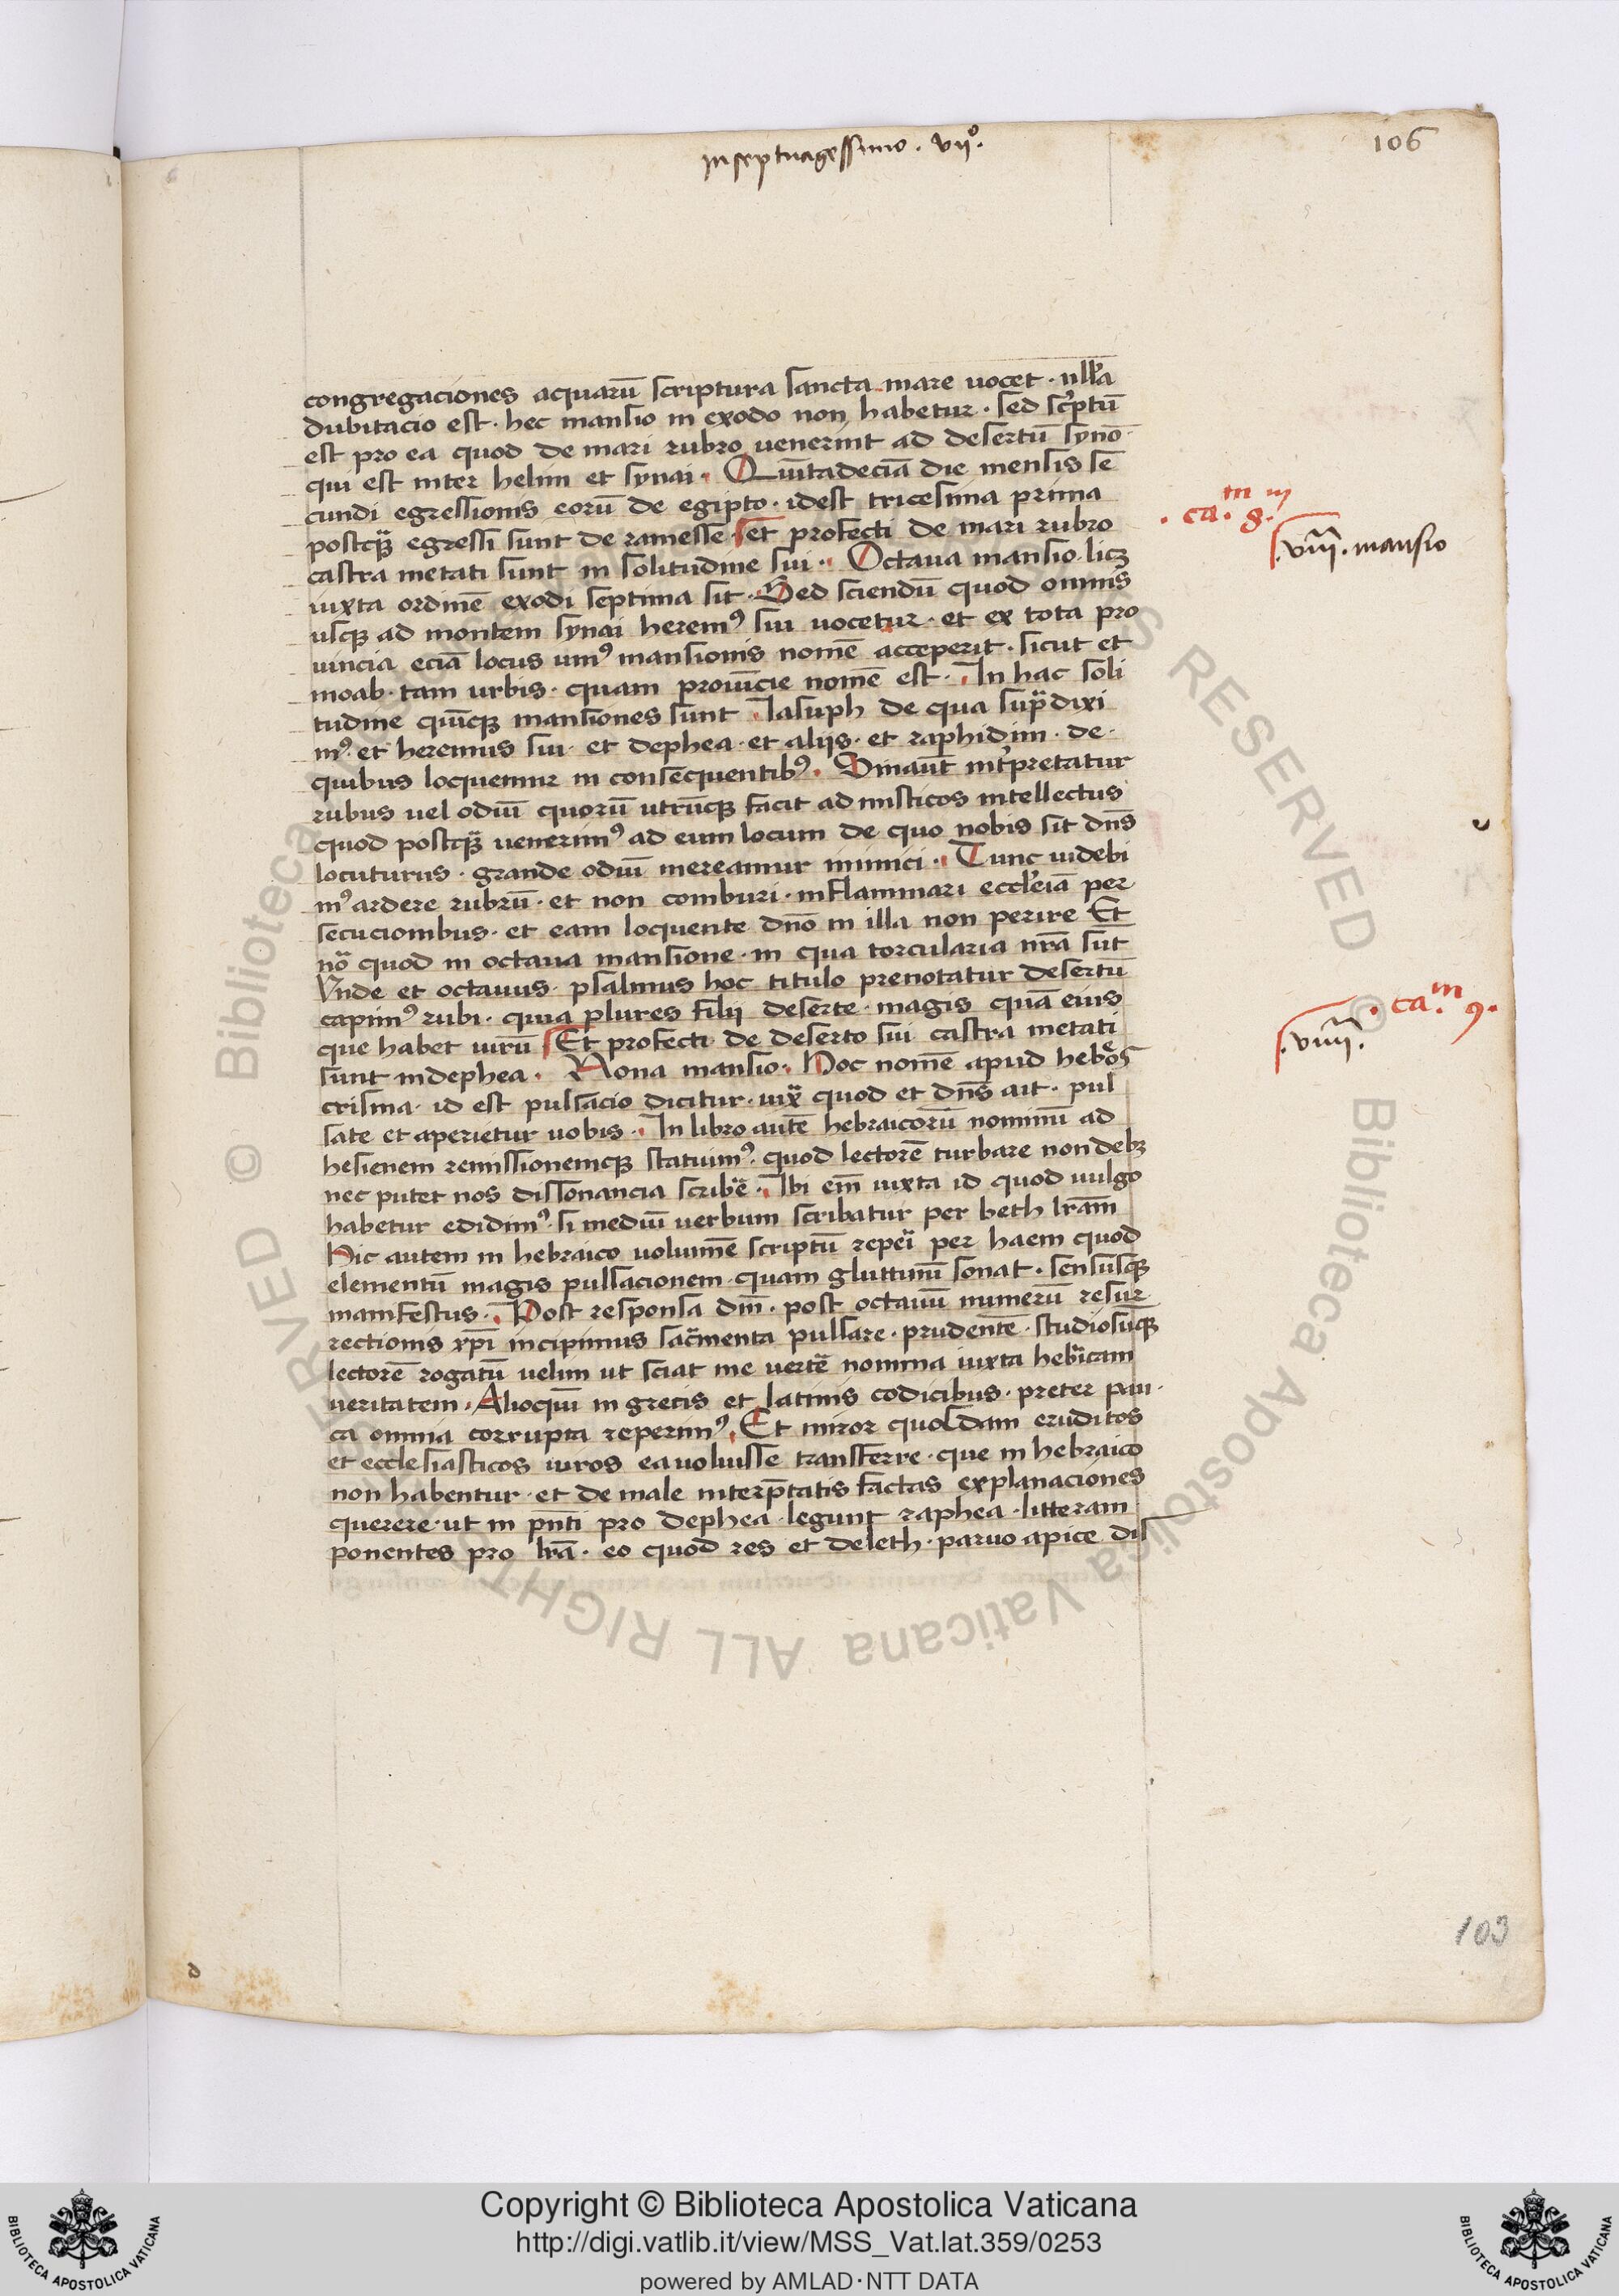 in septuagessimo . vijº.
106
congregaciones aquarū scriptura sancta mare uocet · nll̄a
dubitacio est · hec mansio in exodo non habetur · sed sc̓ptū
est pro ea quod de mari rubro uenerint ad desertū synō
qui est inter helim et synai · Quītadeciā die mensis sē
cundi egressionis eorū de egipto · idest tricesima prima
postqꝫ egressi sunt de ramesse · et profecti de mari rubro
castra metati sunt in solitudine sin · Octaua mansio licꝫ
iuxta ordinē exodi septima sit · Sed sciendū quod omnis
usqꝫ ad montem synai heremꝰ sin uocetur · et ex tota pro
uincia eciā locus unꝰ mansionis nomē acceperit · sicut et
moab · tam urbis · quam prouīcie nomē est · In hac soli
tudine quīcqꝫ mansiones sunt Iasuph de qua sup̄dixi
mꝰ et heremus sin · et dephea · et alijs · et raphidim · de ·
quibus loquemur in consequentibꝰ · Sinaūt int̓pretatur
rubus uel odiū quorū utrūcqꝫ facit ad misticos intellectus
quod postqꝫ uenerimꝰ ad eum locum de quo nobis sit dn̄s
locuturus · grande odiū mereamur inimici · Tunc uidebi
mꝰ ardere rubrū · et non comburi · inflammari eccl̓eiā per
secucionibus · et eam loquente dn̄o in illa non perire Et
no quod in octaua mansione · in qua torcularia nr̄a sūt
Vnde et octauus · psalmus hoc titulo prenotatur desertū
capimꝰ rubi · quia plures filii deserte · magis quā eius
que habet uirū Et profecti de deserto sin castra metati
sunt in dephea · Nona mansio · Hoc nomē apud hebos
crisma · id est pulsacio dicitur · iux̄ quod et dn̄s ait · pul
sate et aperietur uobis · In libro autē hebraicorū nominū ad
hesienem remissionemqꝫ statuimꝰ · quod lectorē turbare non debꝫ
nec putet nos dissonancia scribē · Ibi em̄ iuxta id quod uulgo
habetur edidimꝰ · si mediū uerbum scribatur per beth lr̄am
Hic autem in hebraico uolumē scriptū repeī per haem quod
elementū magis pulsacionem · quam gluttinū sonat · sensusqꝫ
manifestus · Post responsa dnī · post octauū numerū resur
rectionis xp̄i incipimus sac̄menta pulsare · prudentē · studiosūqꝫ
lectorē rogatū uelim ut sciat me uertē nomina iuxta heb̓icam
ueritatem · Alioquī in grecis et latinis codicibus · preter pau ·
ca omnia corrupta reperimꝰ · Et miror quosdam eruditos
et ecclesiasticos uiros ea uoluisse transferre · que in hebraico
non habentur · et de male interp̄tatis factas explanaciones
querere · ut in pn̄ti pro dephea · legunt raphea · litteram
ponentes pro lr̄a · eo quod res et deleth · paruo apice dis
. ca.ᵐ 8.
.viij. mansio
. ca.ᵐ 9.
.viiij.
103
d
Copyright © Biblioteca Apostolica Vaticana
http://digi.vatlib.it/view/MSS_Vat.lat.359/0253
powered by AMLAD·NTT DATA
BIBLIOTECA APOSTOLICA VATICANA
BIBLIOTECA APOSTOLICA VATICANA
© Biblioteca Apostolica Vaticana ALL RIGHTS RESERVED